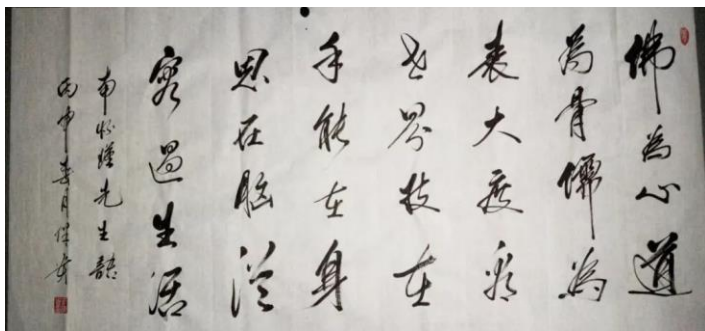 佛為心道
為骨儒為
表大度看
世界技在
手能在身
思在脑從
容過生活
南怀瑾先生語
丙申春月